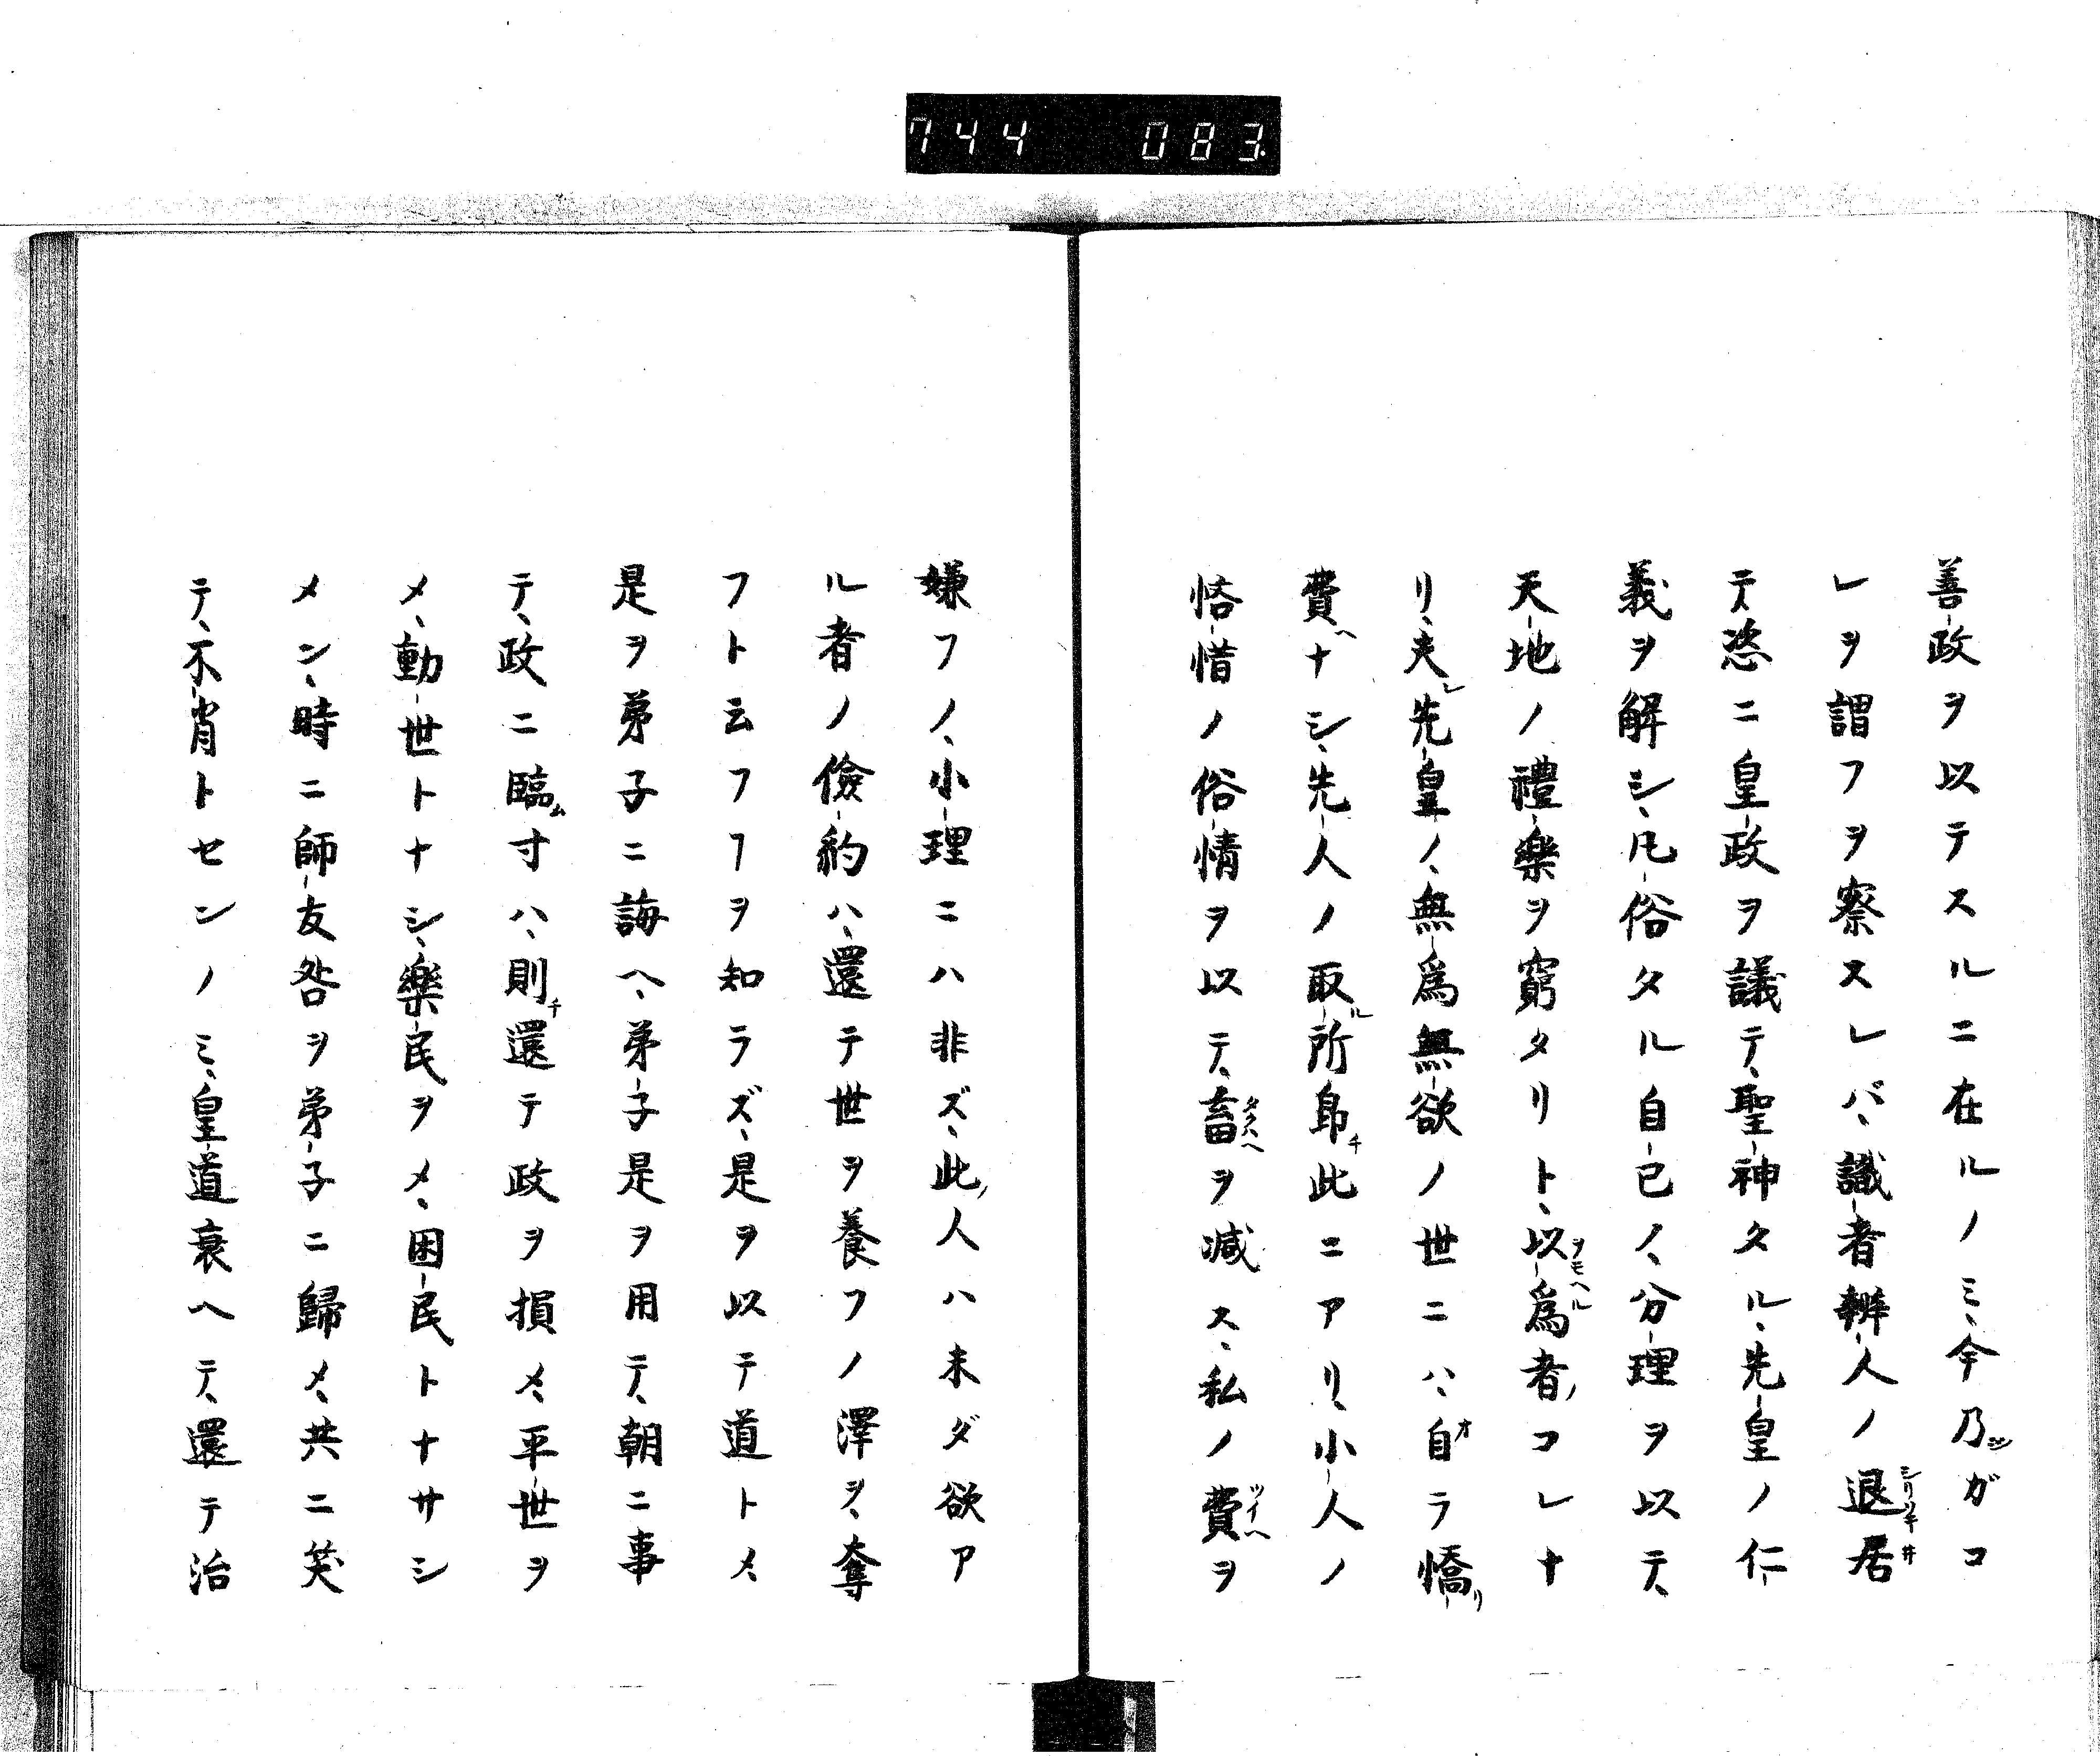 744 083
善政ヲ以テスルニ在ルノミ、今乃ガコ
レヲ謂フヲ察スレバ、識者辨人ノ退居
テ、恣ニ皇政ヲ議テ、聖神タル、先皇ノ仁
義ヲ解シ、凡俗タル自己ノ、分理ヲ以テ、
天地ノ禮樂ヲ窮タリト、以爲者コレナ
リ、夫先皇ノ、無爲無欲ノ世ニハ、自ラ憍
費ナシ、先人ノ取所卽此ニアリ、小人ノ
悋惜ノ俗情ヲ以テ、畜ヲ減ス、私ノ費ヲ
嫌フノ、小理ニハ非ズ、此人ハ未ダ欲ア
ル者ノ儉約ハ、還テ世ヲ養フノ澤ヲ、奪
フト云フヿヲ知ラズ、是ヲ以テ道トメ、
是ヲ弟子ニ誨ヘ、弟子是ヲ用テ、朝ニ事
テ、政ニ臨寸ハ、則還テ政ヲ損メ、平世ヲ
メ、動世トナシ、樂民ヲメ、困民トナサシ
メン、時ニ師友咎ヲ弟子ニ歸メ、共ニ笑
テ、不肖トセンノミ、皇道衰ヘテ、還テ治